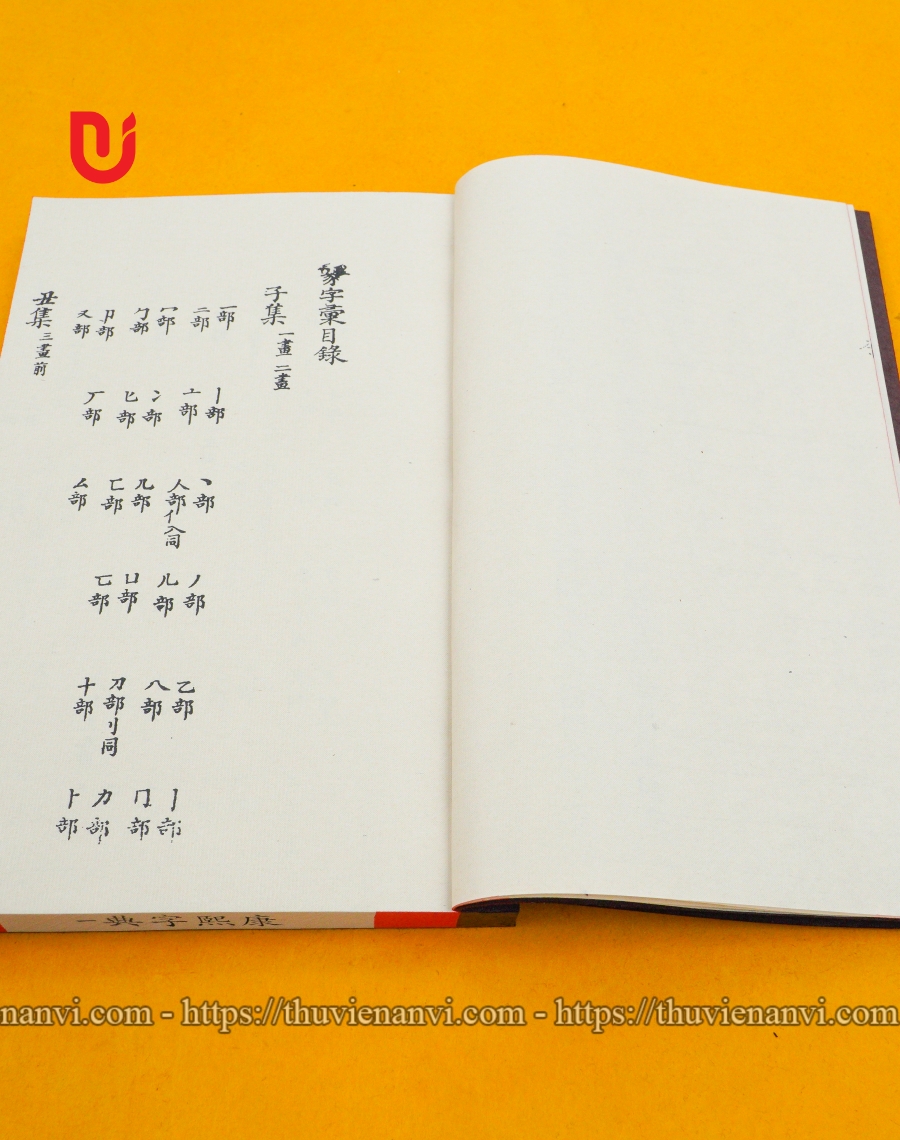 字彙目錄
子集 一畫 二畫
一部 丨部 丶部 丿部 乙部 亅部
二部 亠部 人部亻入同 儿部 八部 冂部
冖部 冫部 几部 凵部 刀部刂同 力部
勹部 匕部 匚部 匸部 十部 卜部
卩部 厂部 厶部
又部
丑集 三畫前
康熙字典一
nanvi.com - https://thuvienanvi.com - https://thuvienanvi.com